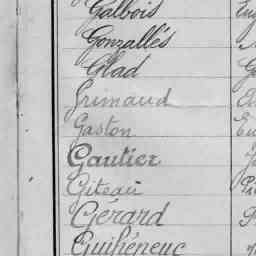 Galbois
Gonzallés
Glad
Grimaud
Gaston
Gautier
Giteau
Gérard
Guihéneuc